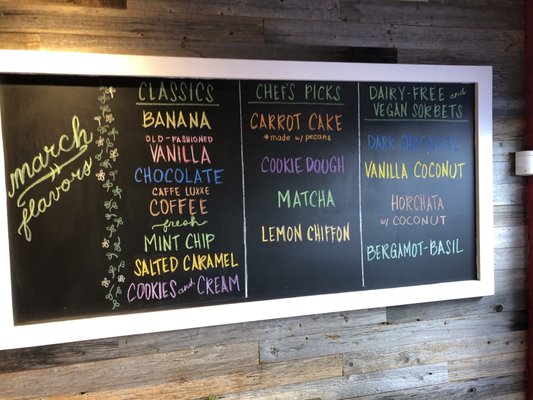 march
flavors
CLASSICS
BANANA
OLD-FASHIONED
VANILLA
CHOCOLATE
CAFFE LUXXE
COFFEE
fresh
MINT CHIP
SALTED CARAMEL
COOKIES and CREAM
CHEF'S PICKS
CARROT CAKE
*made w/ pecans
COOKIE DOUGH
MATCHA
LEMON CHIFFON
DAIRY-FREE and
VEGAN SORBETS
DARK CHOCOLATE
VANILLA COCONUT
HORCHATA
w/ COCONUT
BERGAMOT-BASIL